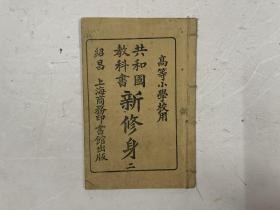 高等小學校用
共和國
教科書
新修身
二
紹昌
上海商務印書館出版